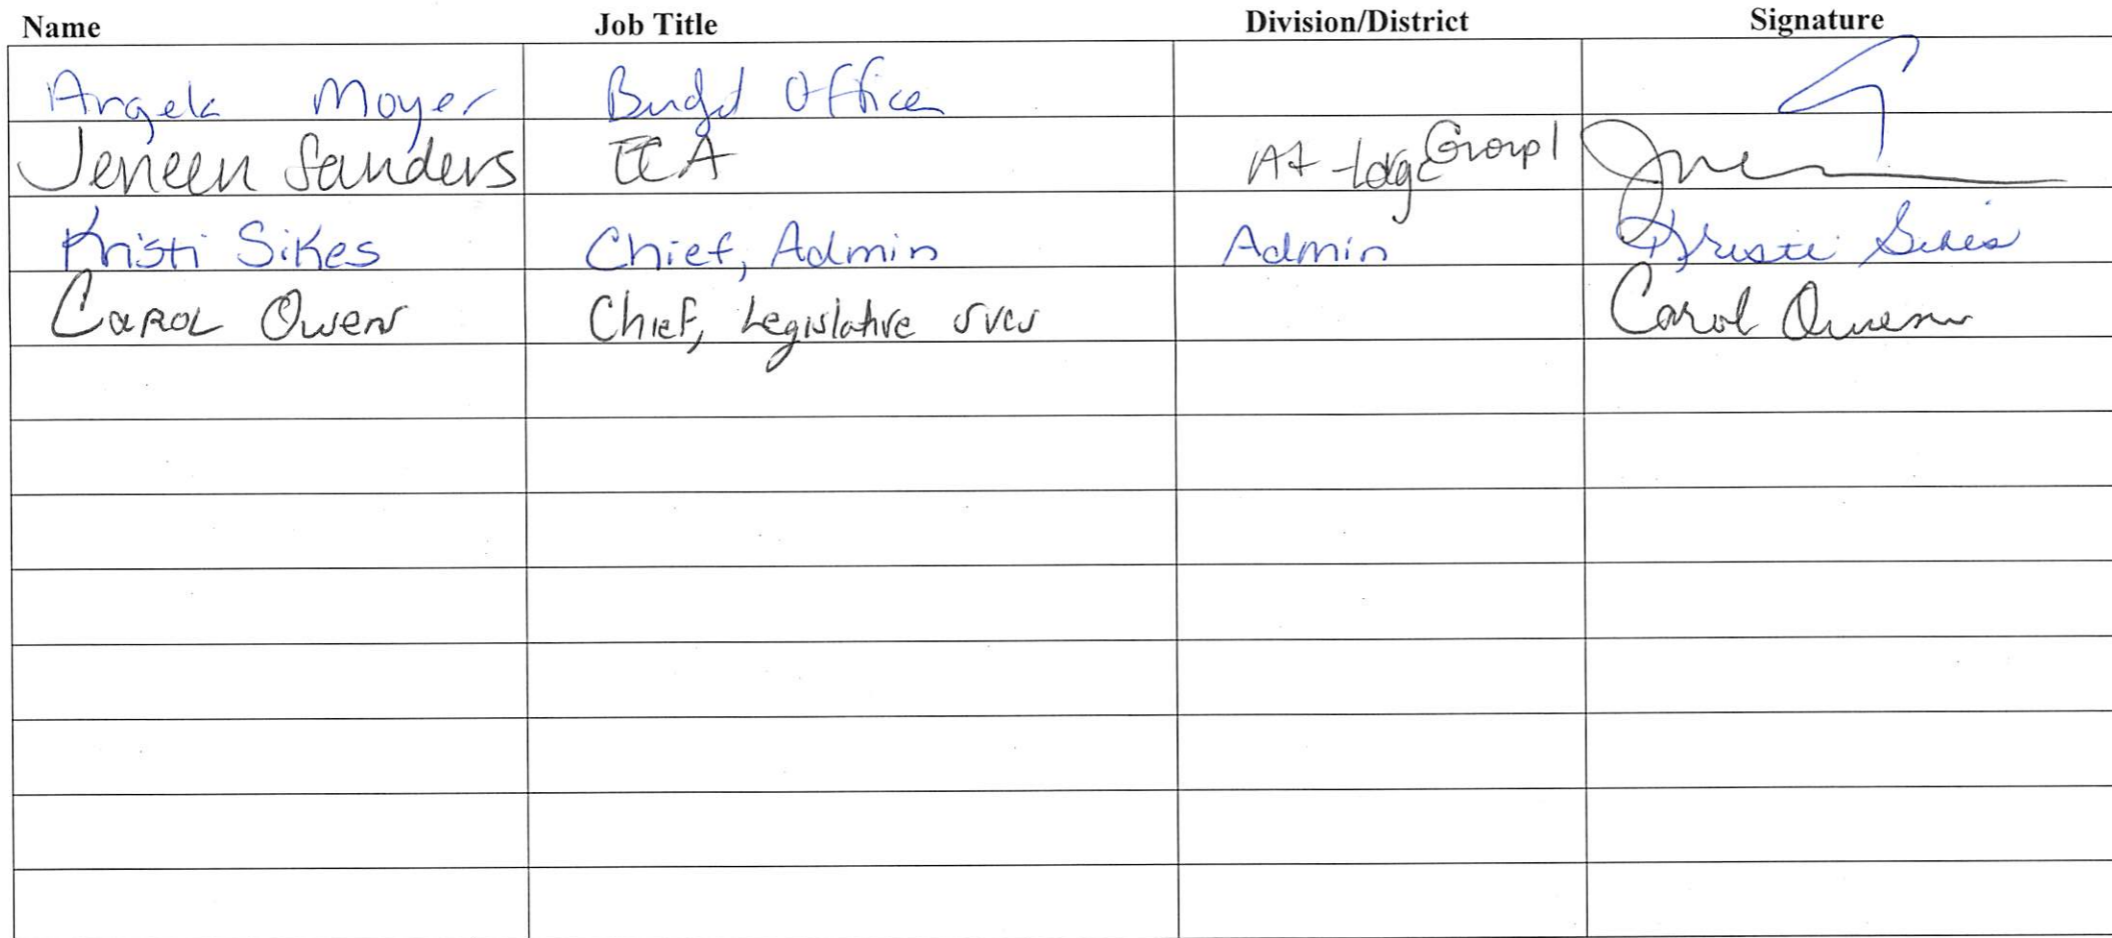 Name Job Title Division/District Signature
Angela Moyer Budget Officer
Jeneen Sanders ECA At-large Group 1
Kristi Sikes Chief, Admin Admin Kristi Sikes
Carol Owen Chief, Legislative svcs Carol Owen